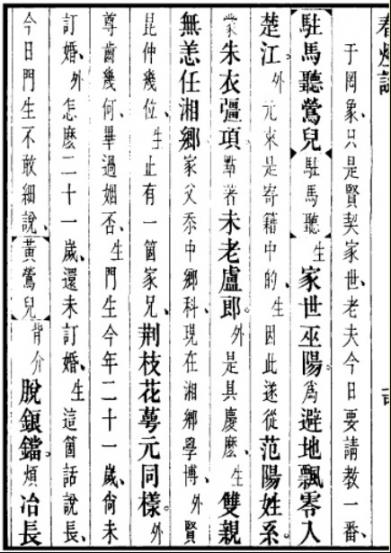 于罔象、只是賢契家世、老夫今日要請教一番、
【駐馬聽鶯兒】【駐馬聽】生家世巫陽。爲避地飄零入
楚江。外元來是寄籍中的、生因此遂從范陽姓系。
蒙朱衣彊項點著未老盧郎。外是具慶麽、生雙親
無恙任湘鄉家父忝中鄉科、現在湘鄉學博、外賢
昆仲幾位、生止有一箇家兄、荆枝花萼元同樣。外
尊齒幾何、畢過姻否、生門生今年二十一歲、尚未
訂婚、外怎麽二十一歲、還未訂婚、生這箇話說長、
今日門生不敢細說、【黃鶯兒】背介脫鋃鐺。煩冶長